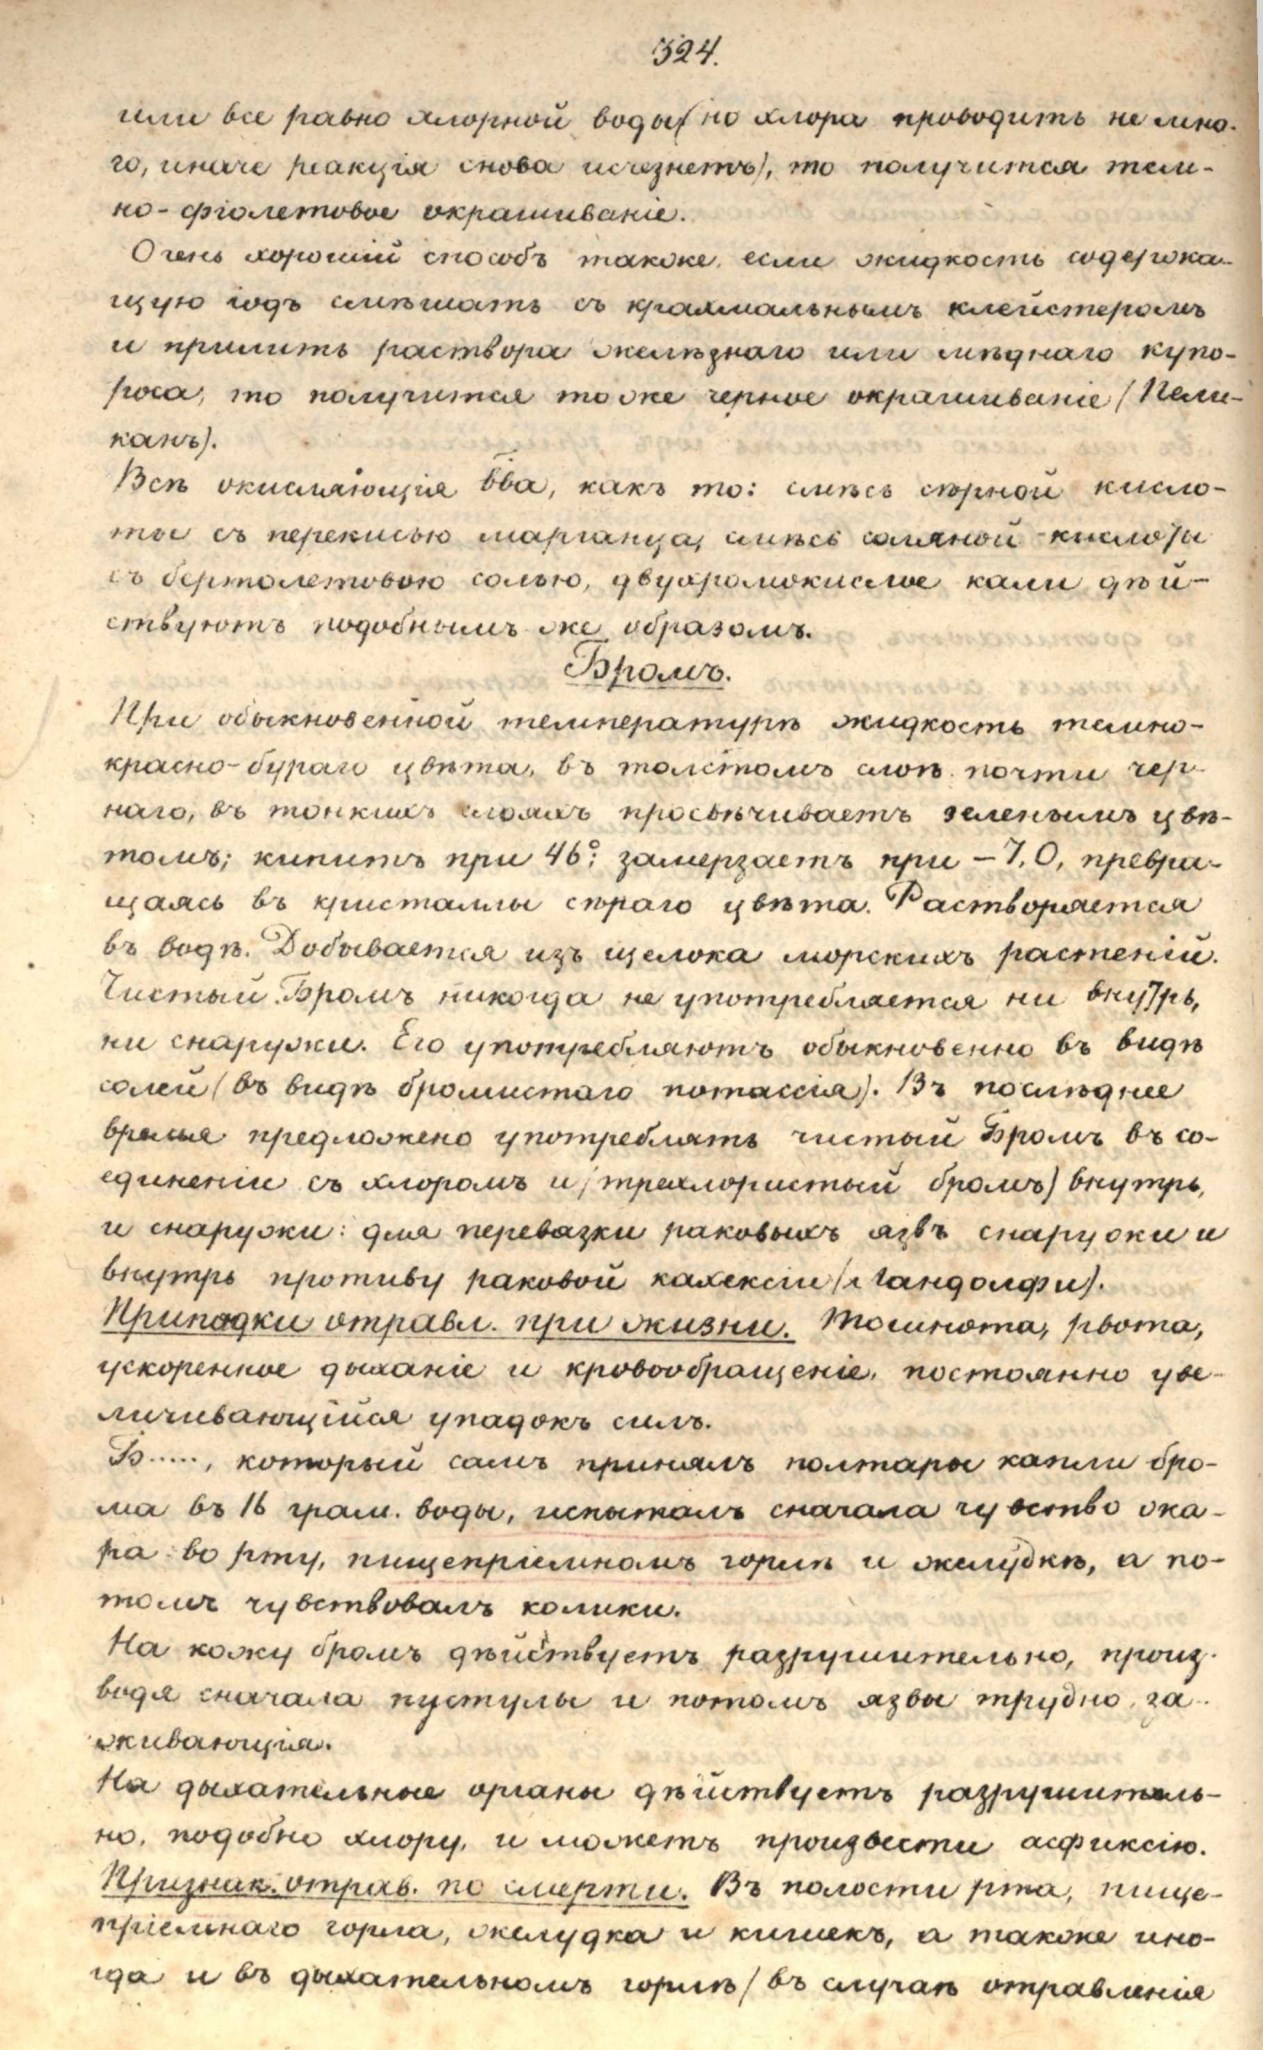 324.
или все равно хлорной воды (но хлора проводить не мно-
го, иначе реакція снова исчезнетъ), то получится тем-
но-фіолетовое окрашиваніе.
Очень хорошій способъ также, если жидкость содержа-
щую іодъ смѣшать съ крахмальнымъ клейстеромъ
и прилить раствора желѣзнаго или мѣднаго купо-
роса, то получится тоже черное окрашиваніе (Пели-
канъ).
Всѣ окисляющія вва, какъ то: смѣсь сѣрной кисло-
ты съ перекисью марганца, смѣсь соляной кислоты
съ бертолетовою солью, двухромокислое кали дѣй-
ствуютъ подобнымъ же образомъ.
Бромъ.
При обыкновенной температурѣ жидкость темно-
красно-бураго цвѣта, въ толстомъ слоѣ почти чер-
наго, въ тонкихъ слояхъ просвѣчиваетъ зеленымъ цвѣ-
томъ; кипитъ при 46°; замерзаетъ при – 7,0, превра-
щаясь въ кристаллы сѣраго цвѣта. Растворяется
въ водѣ. Добывается изъ щелока морскихъ растеній.
Чистый Бромъ никогда не употребляется ни внутрь,
ни снаружи. Его употребляютъ обыкновенно въ видѣ
солей (въ видѣ бромистаго потассія). Въ послѣднее
время предложено употреблять чистый Бромъ въ со-
единеніи съ хлоромъ и (треххлористый бромъ) внутрь,
и снаружи: для перевязки раковыхъ язвъ снаружи и
внутрь противу раковой кахексіи (Гандолфи).
Припадки отравл. при жизни. Тошнота, рвота,
ускоренное дыханіе и кровообращеніе, постоянно уве-
личивающійся упадокъ силъ.
Б....., который самъ принялъ полтары капли бро-
ма въ 16 грам. воды, испыталъ сначала чувство жа-
ра во рту, пищепріемномъ горлѣ и желудкѣ, а по-
томъ чувствовалъ колики.
На кожу бромъ дѣйствуетъ разрушительно, произ-
водя сначала пустулы и потомъ язвы трудно за-
живающія.
На дыхательные органы дѣйствуетъ разрушитель-
но, подобно хлору, и можетъ произвести асфиксію.
Признак. отрав. по смерти. Въ полости рта, пище-
пріемнаго горла, желудка и кишекъ, а также ино-
гда и въ дыхательномъ горлѣ (въ случаѣ отравленія